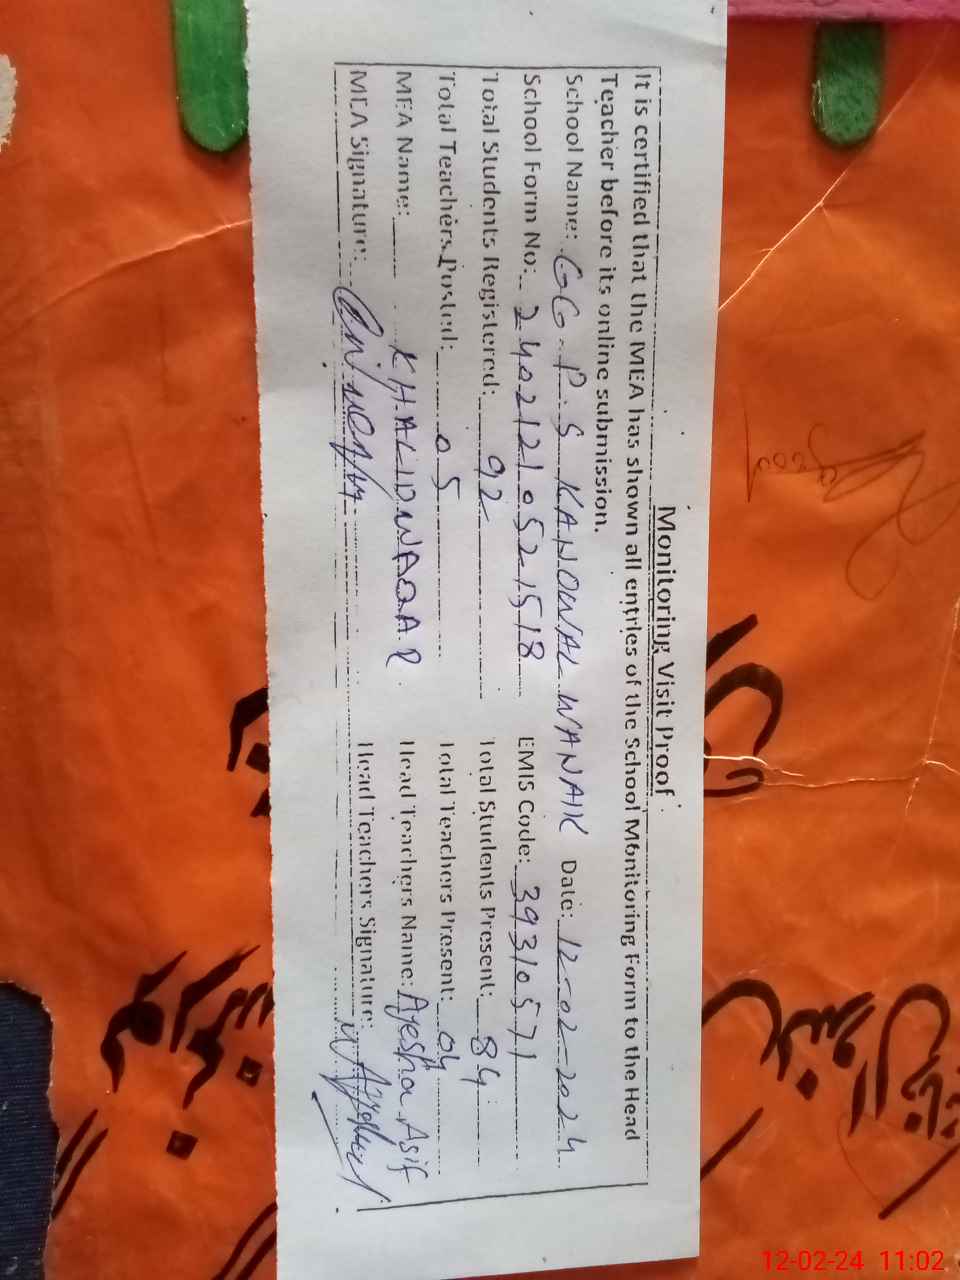 Monitoring Visit Proof
It is certified that the MEA has shown all entries of the School Monitoring Form to the Head
Teacher before its online submission.
School Name: GG.P.S KANOWAL WANAIK Date: 12-02-2024
School Form No: 24021210521518 EMIS Code: 39310571
Total Students Registered: 92 Total Students Present: 84
Total Teachers Posted: 05 Total Teachers Present: 04
MEA Name: KHALID WAQAR Head Teachers Name: Ayesha Asif
MEA Signature: Head Teachers Signature:
12-02-24 11:02